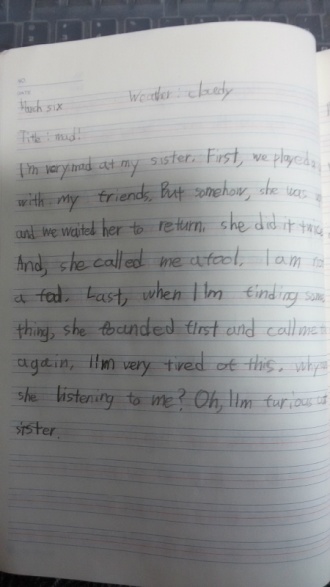 NO
DATE
March six Weather: cloudy
Title: mad!
I'm very mad at my sister. First, we played
with my friends. But somehow, she was
and we waited her to return. she did it twice
And, she called me a fool. I am not
a fool. Last, when I I'm finding some
thing, she founded first and call me
again. I I'm very tired of this. why
she listening to me? Oh, I I'm furious at
sister.